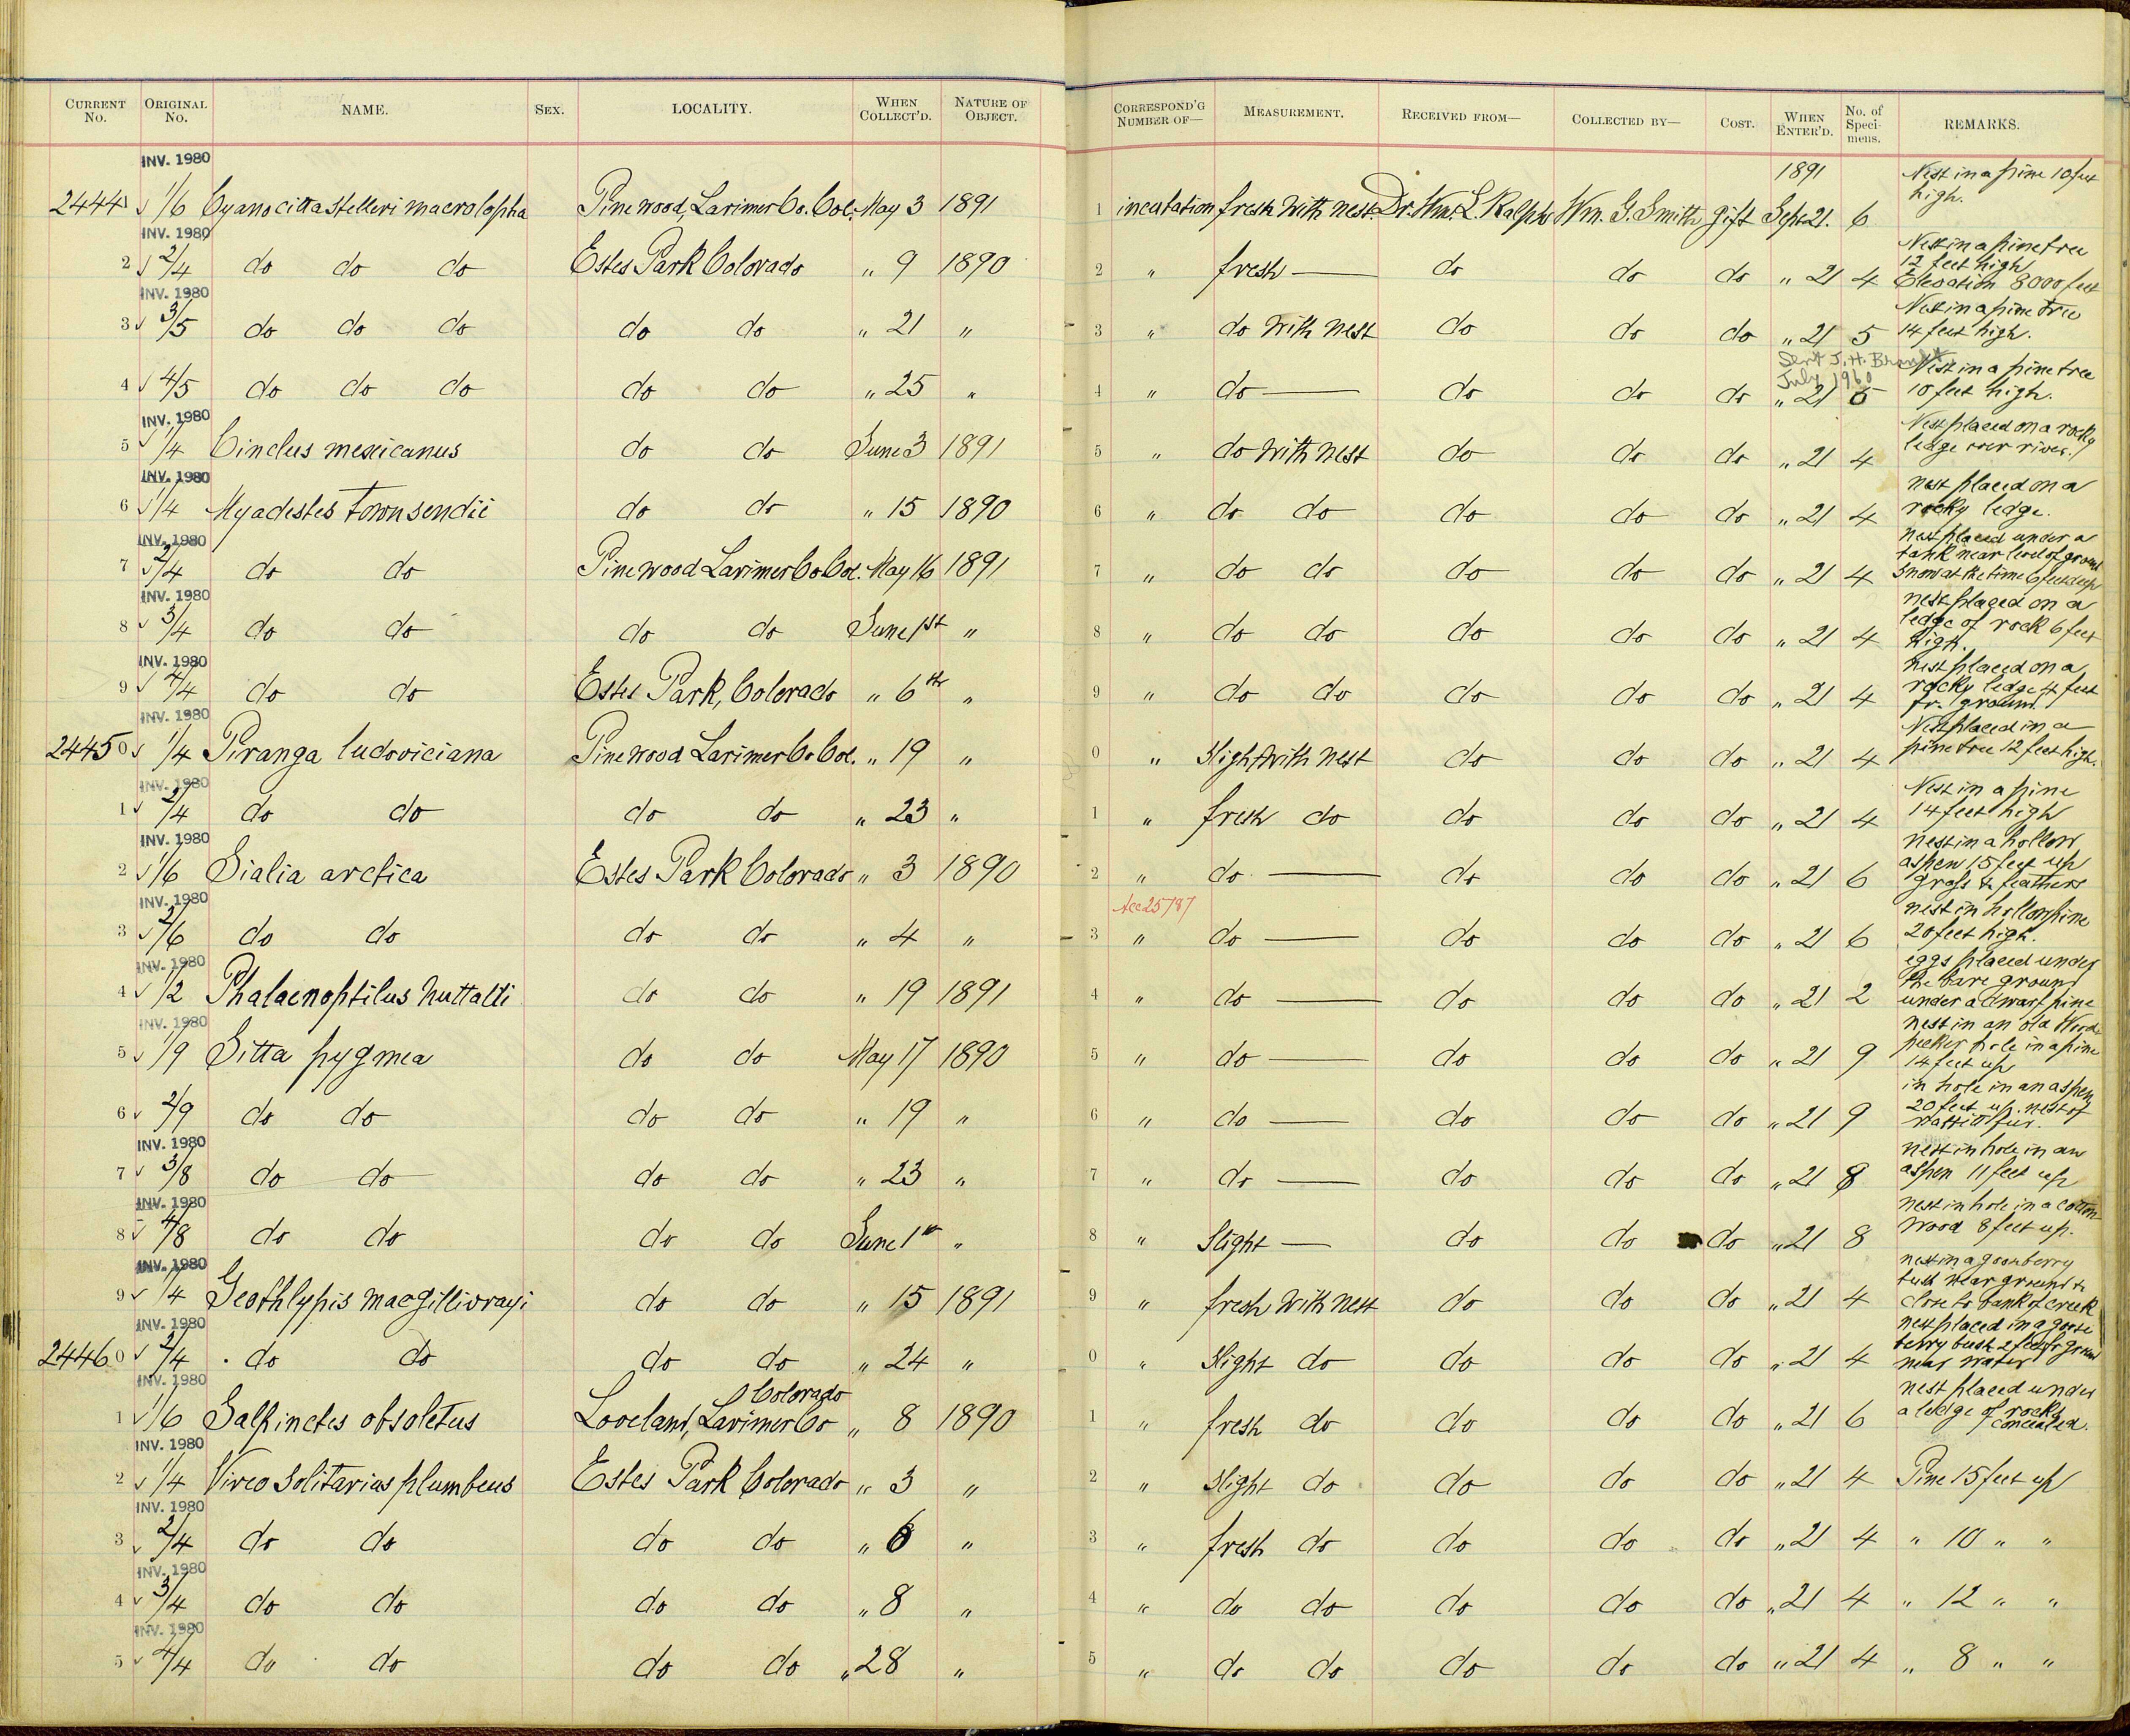 CURRENT No. ORIGINAL No. NAME. SEX. LOCALITY. WHEN COLLECT'D. NATURE OF OBJECT. CORRESPOND'G NUMBER OF— MEASUREMENT. RECEIVED FROM— COLLECTED BY— COST. WHEN ENTER'D. No. of Speci-mens. REMARKS.
INV. 1980 1891
24441 √ 1/6 Cyanocitta stelleri macrolopha Pinewood, Larimer Co. Col. May 3 1891 1 incubation fresh with nest. Dr. Wm. L. Ralph Wm. G. Smith gift Sept 21. 6 Nest in a pine 10 feet high.
INV. 1980
2 √ 2/4 do do do Estes Park Colorado " 9 1890 2 " fresh — do do do " 21 4 Nest in a pine tree 12 feet high Elevation 8000 feet
INV. 1980
3 √ 3/5 do do do do do " 21 " 3 " do with nest do do do " 21 5 Nest in a pine tree 14 feet high.
Sent J. H.
July 1960
4 √ 4/5 do do do do do " 25 " 4 " do — do do do " 21 5 Nest in a pine tree 10 feet high.
INV. 1980
5 √ 1/4 Cinclus mexicanus do do June 3 1891 5 " do with nest do do do " 21 4 Nest placed on a rocky ledge over river.
INV. 1980
6 √ 1/4 Myadestes townsendii do do " 15 1890 6 " do do do do do " 21 4 nest placed on a rocky ledge.
INV. 1980
7 √ 2/4 do do Pinewood Larimer Co Col. May 16 1891 7 " do do do do do " 21 4 nest placed under a tank near level of ground snow at the time 6 feet deep
INV. 1980
8 √ 3/4 do do do do June 1st " 8 " do do do do do " 21 4 nest placed on a ledge of rock 6 feet high.
INV. 1980
9 √ 4/4 do do Estes Park, Colorado " 6th " 9 " do do do do do " 21 4 nest placed on a rocky ledge 4 feet fr. ground
INV. 1980
24450 √ 1/4 Piranga ludoviciana Pinewood Larimer Co Col. " 19 " 0 " slight with nest do do do " 21 4 Nest placed in a pine tree 12 feet high.
INV. 1980
1 √ 2/4 do do do do " 23 " 1 " fresh do do do do " 21 4 Nest in a pine 14 feet high
INV. 1980
2 √ 1/6 Sialia arctica Estes Park Colorado " 3 1890 2 " do — do do do " 21 6 nest in a hollow aspen 15 feet up grass & feathers
INV. 1980 Acc 25787
3 √ 2/6 do do do do " 4 " 3 " do — do do do " 21 6 nest in hollow pine 20 feet high.
INV. 1980
4 √ 1/2 Phalaenoptilus nuttalli do do " 19 1891 4 " do — do do do " 21 2 eggs placed under the bare ground under a dwarf pine
INV. 1980
5 √ 1/9 Sitta pygmea do do May 17 1890 5 " do — do do do " 21 9 nest in an old Wood pecker hole in a pine 14 feet up
6 √ 2/9 do do do do " 19 " 6 " do — do do do " 21 9 in hole in an aspen 20 feet up. nest of fur.
INV. 1980
7 √ 3/8 do do do do " 23 " 7 " do — do do do " 21 8 nest in hole in an aspen 11 feet up
INV. 1980
8 √ 4/8 do do do do June 1st " 8 " Slight — do do do " 21 8 nest in hole in a cotton-wood 8 feet up.
INV. 1980
9 √ 1/4 Geothlypis macgillivrayi do do " 15 1891 9 " fresh with nest do do do " 21 4 nest in a gooseberry bush near ground & close to bank of creek
INV. 1980
24460 √ 2/4 do do do do " 24 " 0 " slight do do do do " 21 4 nest placed in a goose berry bush 2 feet fr ground near water
INV. 1980
1 √ 1/6 Salpinctes obsoletus Loveland, Larimer Co Colorado " 8 1890 1 " fresh do do do do " 21 6 nest placed under a ledge of rocks concealed.
INV. 1980
2 √ 1/4 Vireo solitarius plumbeus Estes Park Colorado " 3 " 2 " slight do do do do " 21 4 Pine 15 feet up
INV. 1980
3 √ 2/4 do do do do " 6 " 3 " fresh do do do do " 21 4 " 10 " "
INV. 1980
4 √ 3/4 do do do do " 8 " 4 " do do do do do " 21 4 " 12 " "
INV. 1980
5 √ 4/4 do do do do " 28 " 5 " do do do do do " 21 4 " 8 " "